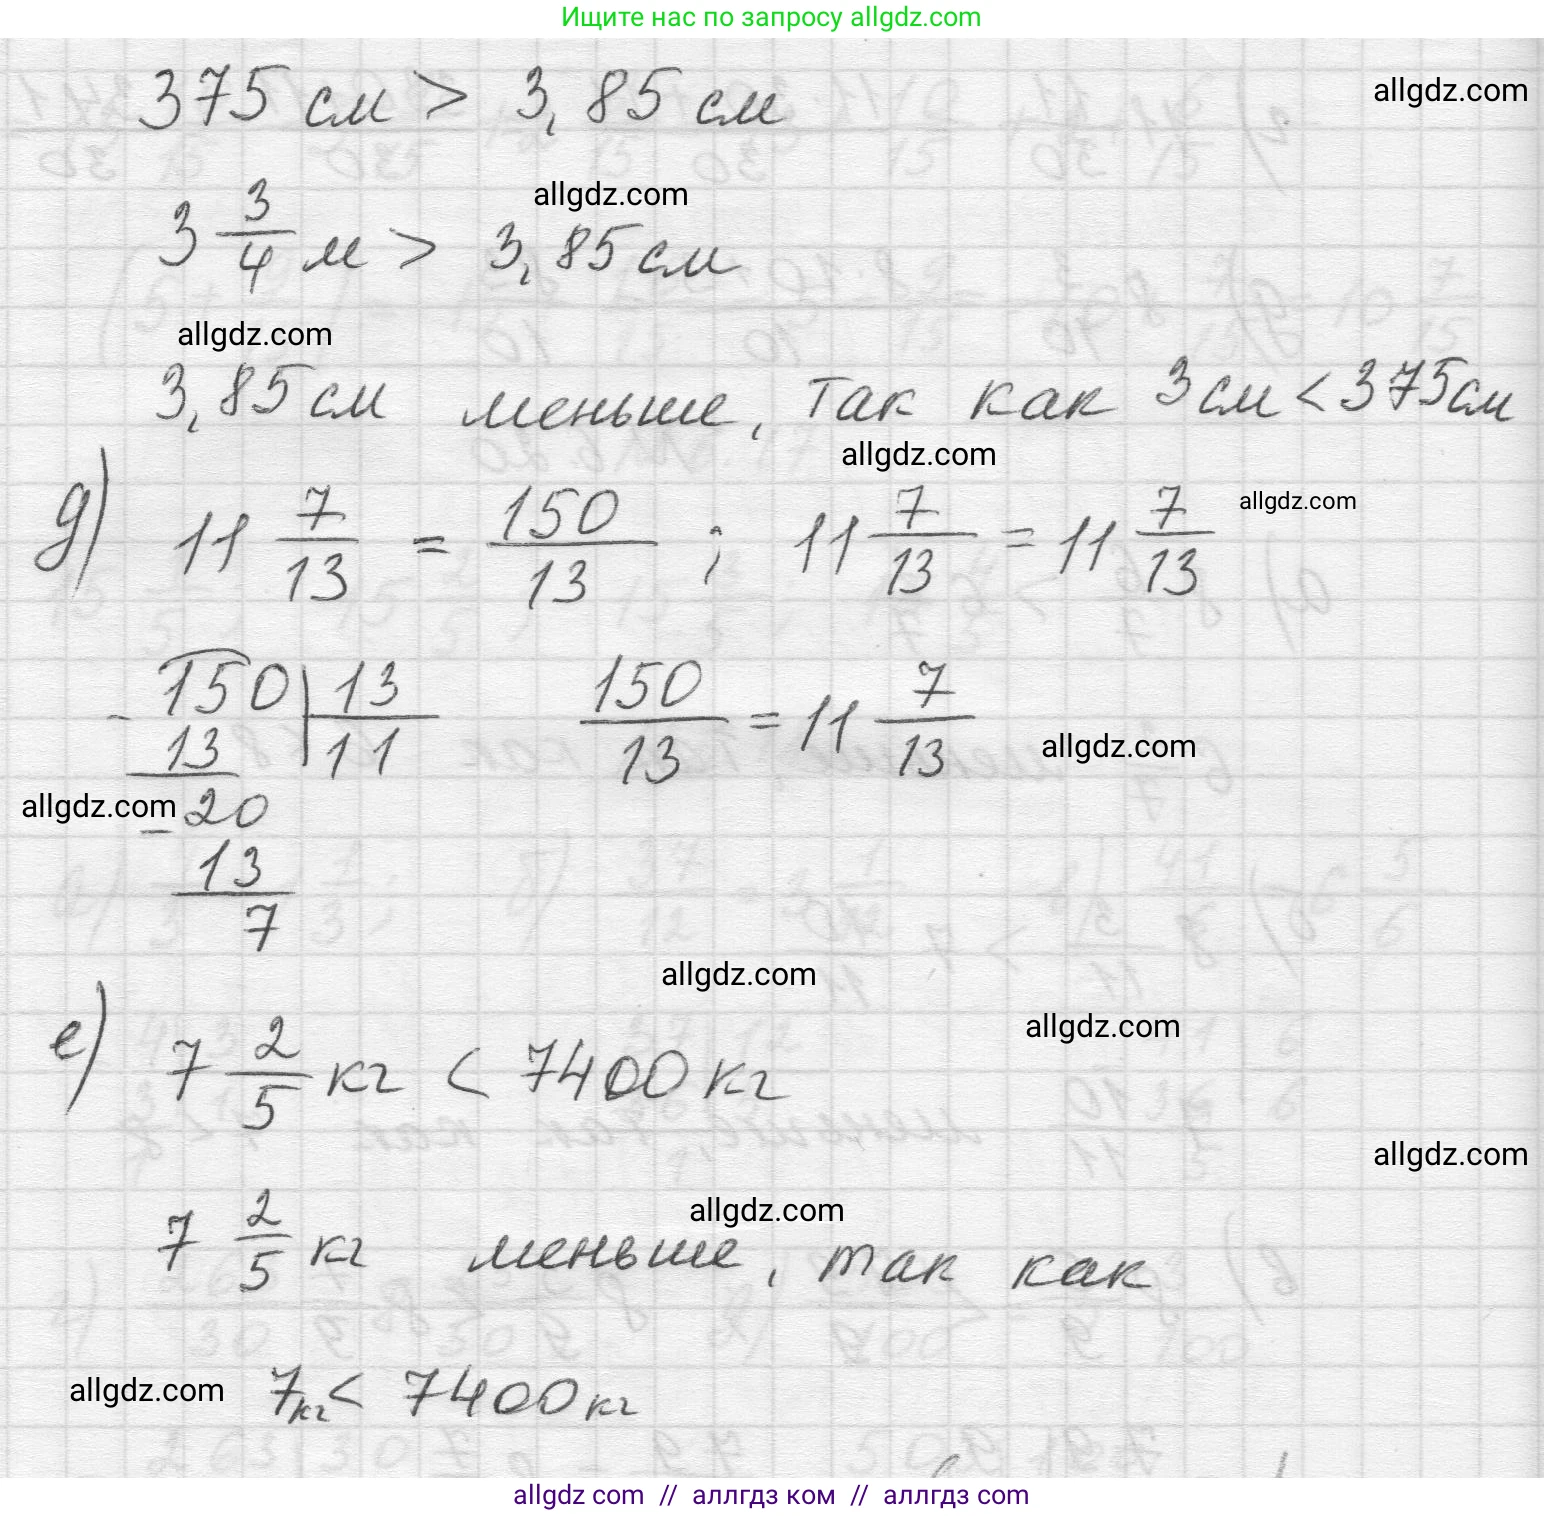 Ищите нас по запросу allgdz.com
375 см > 3,85 см
allgdz.com
allgdz.com
3 3/4 м > 3,85 см
allgdz.com
3,85 см меньше, так как 3 см < 375 см
allgdz.com
д) 11 7/13 = 150/13 ; 11 7/13 = 11 7/13
allgdz.com
150 | 13
- 13 | 11
150/13 = 11 7/13
allgdz.com
allgdz.com
- 20
13
7
allgdz.com
allgdz.com
е) 7 2/5 кг < 7400 кг
allgdz.com
allgdz.com
7 2/5 кг меньше, так как
allgdz.com
7 кг < 7400 кг
allgdz com // аллгдз ком // аллгдз com